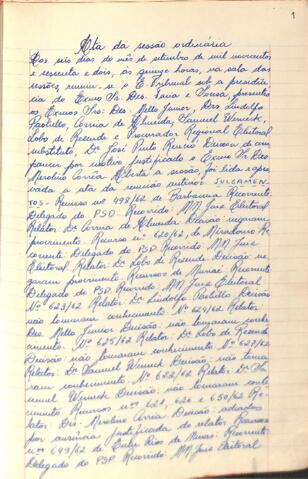 1
Ata da sessão ordinária
Aos seis dias do mês de setembro de mil novecentos
e sessenta e dois, às quinze horas, na sala das
sessões, reuniu-se o E. Tribunal sob a presidên
cia do Exmo Sr. Des. Faria e Sousa, presentes
os Exmos Srs: Des. Mello Junior, Drs. Lindolfo
Paolielo, Correia de Almeida, Samuel Werneck,
Lobo de Resende e Procurador Regional Eleitoral
substituto, Dr. José Pinto Renó. Deixou de com
parecer por motivo justificado o Exmo Sr. Des.
Merolino Corrêa. Aberta a sessão, foi lida e apro
vada a ata da reunião anterior. JULGAMEN
TOS - Recurso nº 498/62 de Barbacena Recorrente
Delegado do PSD Recorrido MM Juiz Eleitoral
Relator: Dr. Correia de Almeida Decisão: negaram
provimento. Recurso nº 620/62, de Miradouro Re
corrente: Delegado do PSD Recorrido MM Juiz
Eleitoral Relator: Dr. Lobo de Resende Decisão: ne
garam provimento. Recursos de Muriaé: Recorrente
Delegado do PSD Recorrido MM Juiz Eleitoral
Nº 623/62 Relator: Dr. Lindolfo Paolielo Decisão
não tomaram conhecimento. Nº 624/62 Relator:
Des. Mello Junior Decisão: não tomaram conhe
cimento. Nº 625/62 Relator: Dr. Lobo de Resende
Decisão: não tomaram conhecimento. Nº 627/62
Relator: Dr. Samuel Werneck Decisão: não toma
ram conhecimento. Nº 622/62 Relator: Dr. Sa
muel Werneck Decisão: não tomaram conhe
cimento Recursos nºs 621, 626 e 650/62 Re
lator: Des. Merolino Corrêa Decisão: adiados
por ausência justificada do relator. Recurso
nº 649/62 de Entre Rios de Minas: Recorrente
Delegado do PSP Recorrido MM Juiz Eleitoral